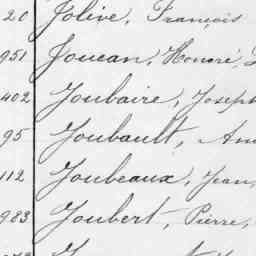 20 Jolive, François
951 Joucan, Honoré,
402 Joubaire, Joseph
95 Joubault,
112 Joubeaux, Jean,
983 Joubert, Pierre,